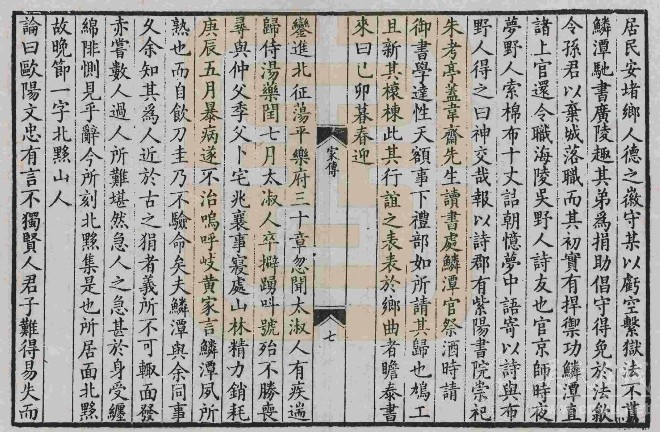 居民安堵鄉人德之徽守某以虧空繫獄法不貰
鱗潭馳書廣陵趣其弟為捐助倡守得免於法歙
令孫君以棄城落職而其初實有捍禦功鱗潭直
諸上官還令職海陵吳野人詩友也官京師時夜
夢野人索棉布十丈詰朝憶夢中語寄以詩與布
野人得之曰神交哉報以詩郡有紫陽書院崇祀
朱考亭蓋韋齋先生讀書處鱗潭官祭酒時請
御書學達性天額事下禮部如所請其歸也鳩工
且新其榱棟此其行誼之表表於鄉曲者瞻泰書
來曰己卯暮春迎
家傳
七
鑾進北征蕩平樂府三十章忽聞太淑人有疾遄
歸侍湯藥閏七月太淑人卒擗踴呌號殆不勝喪
尋與仲父季父卜宅兆襄事寢處山林精力銷耗
庚辰五月暴病遂不治嗚呼岐黃家言鱗潭夙所
熟也而自飲刀圭乃不驗命矣夫鱗潭與余同事
久余知其為人近於古之狷者義所不可輙面發
亦嘗數人過人所難堪然急人之急甚於身受纏
綿陫惻見乎辭今所刻北黟集是也所居面北黟
故晚節一字北黟山人
論曰歐陽文忠有言不獨賢人君子難得易失而